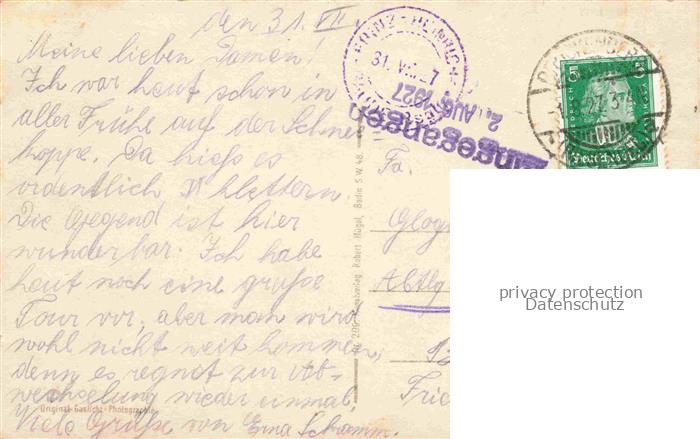 den 31. VII.
Meine lieben Damen!
Ich war heut schon in
aller Frühe auf der Schnee
koppe. Da hieß es
ordentlich klettern.
Die Gegend ist hier
wunderbar. Ich habe
heut noch eine große
Tour vor, aber man wird
wohl nicht weit kommen,
denn es regnet zur Ab-
wechselung wieder einmal.
Viele Grüße von Erna Schramm.
Original-Gaslicht-Photographie
Robert Hügel, Berlin S.W. 48.
PRINZ-HEINRICH-
31. VII. 27
2. AUG. 1927
Eingegangen
5 5
Deutsches Reich
Fa.
Glog
Abtlg
privacy protection
Datenschutz